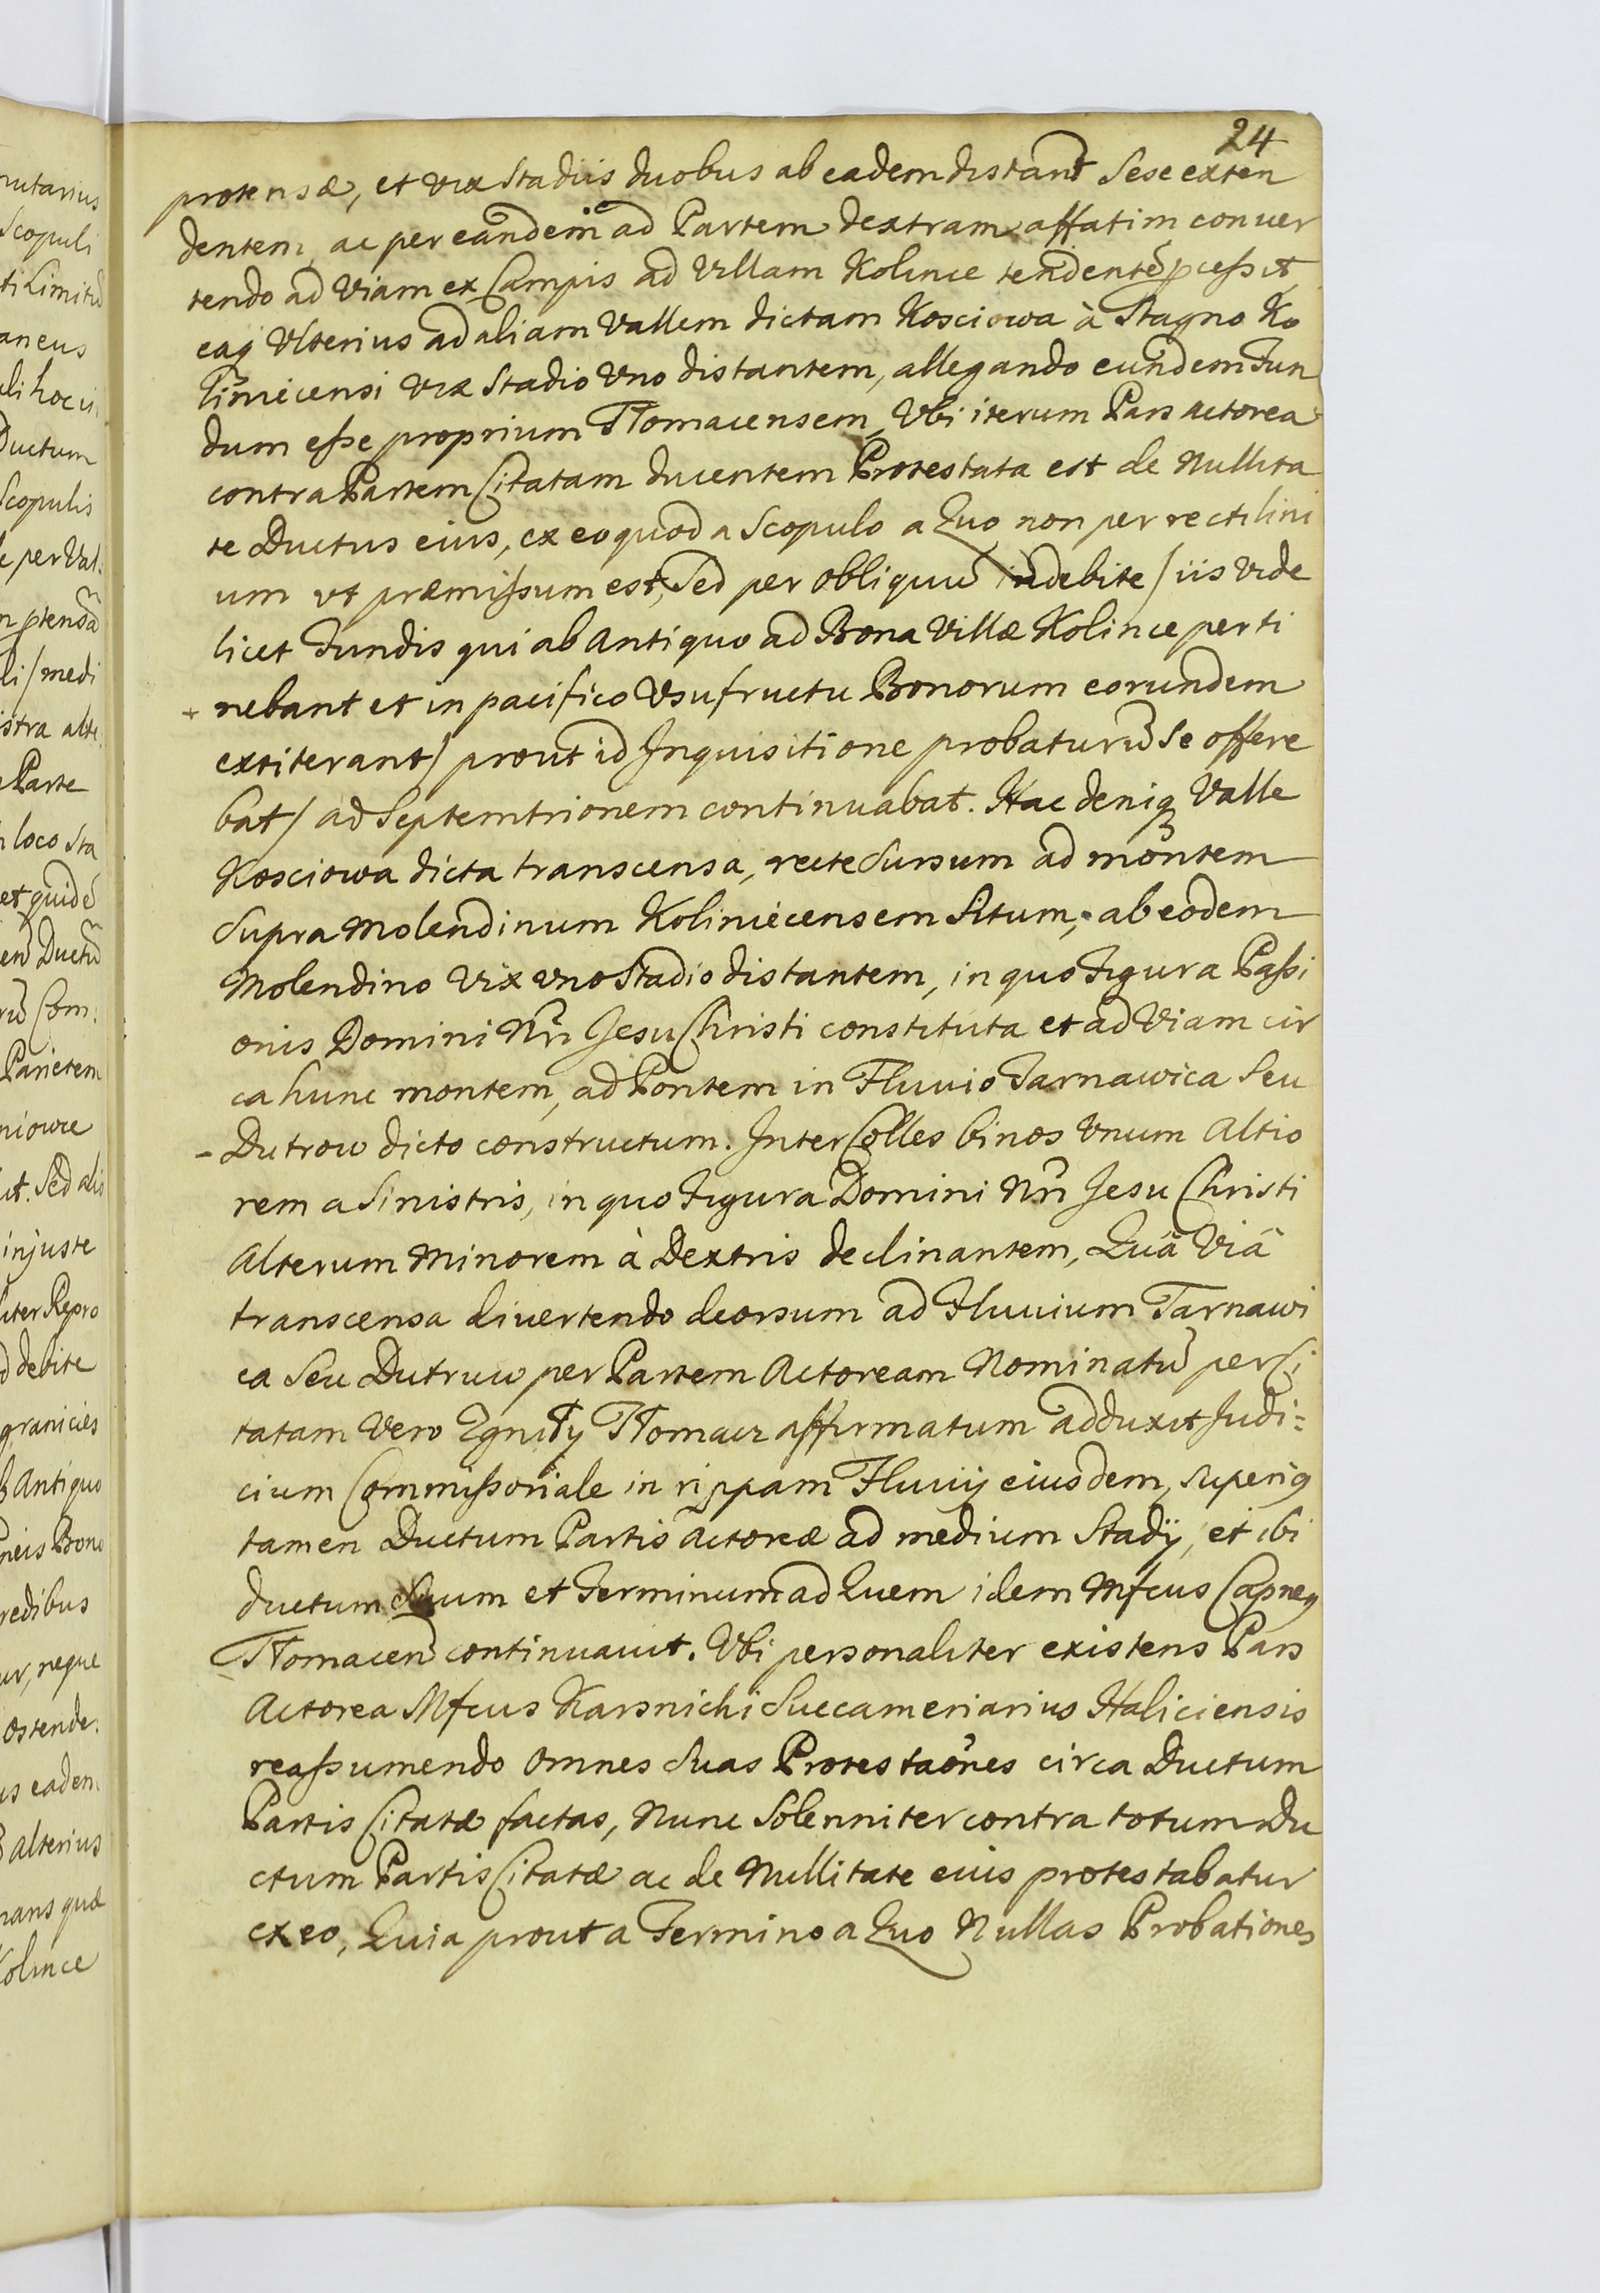 24
protensæ, et vix Stadiis duobus ab eadem distant Sese exten
dentem, ac per eandem ad Partem dextram affatim conuer
tendo ad Viam ex Campis ad Villam Kolince tendentẽ pcessit,
eaq Vlterius ad aliam Vallem dictam Kosciowa à Stagno Ko
liniecensi vix Stadio Vno distantem, allegando eundem Fun
dum esse proprium Tłomacensem, Vbi iterum Pars Actorea
contra Partem Citatam ducentem Protestata est de Nullita
te Ductus eius, ex eo quod a Scopulo a Quo non per rectilini
um vt præmissum est, Sed per obliquũ indebite / iis Vide
licet Fundis qui ab Antiquo ad Bona Villæ Kolince perti
nebant et in pacifico Vsufructu Bonorum eorundem
extiterant / prout id Inquisitione probaturũ Se offere
bat / ad Septemtrionem continuabat. Hac deniq Valle
Kosciowa dicta transcensa, recte Sursum ad montem
Supra Molendinum Koliniecensem Situm, ab eodem
Molendino Vix vno Stadio distantem, in quo Figura Passi
onis Domini Nri Jesu Christi constituta et ad Viam cir
ca hunc montem, ad Pontem in Fluuio Tarnawica Seu
Dutrow dicto constructum. Inter Colles binos Vnum Altio
rem a Sinistris, in quo Figura Domini Nri Jesu Christi
Alterum Minorem à Dextris declinantem, Quâ Viâ
transcensa diuertendo deorsum ad Fluuium Tarnawi
ca Seu Dutruw per Partem Actoream Nominatũ per Ci
tatam Vero Zgniły Tłomacz affirmatum adduxit Judi=
cium Commissoriale in rippam Fluuij eiusdem, Superiq
tamen Ductum Partis Actoreæ ad medium Stadij, et ibi
ductum Suum et Terminum ad Quem idem Mfcus Capneq
Tłomacen continuauit. Vbi personaliter existens Pars
Actorea Mfcus Karsnichi Succamerarius Haliciensis
reassumendo omnes Suas Protestaõnes circa Ductum
Partis Citatæ factas, Nunc Solenniter contra totum Du
ctum Partis Citatæ ac de Nullitate eius protestabatur
ex eo, Quia prout a Termino a Quo Nullas Probationes